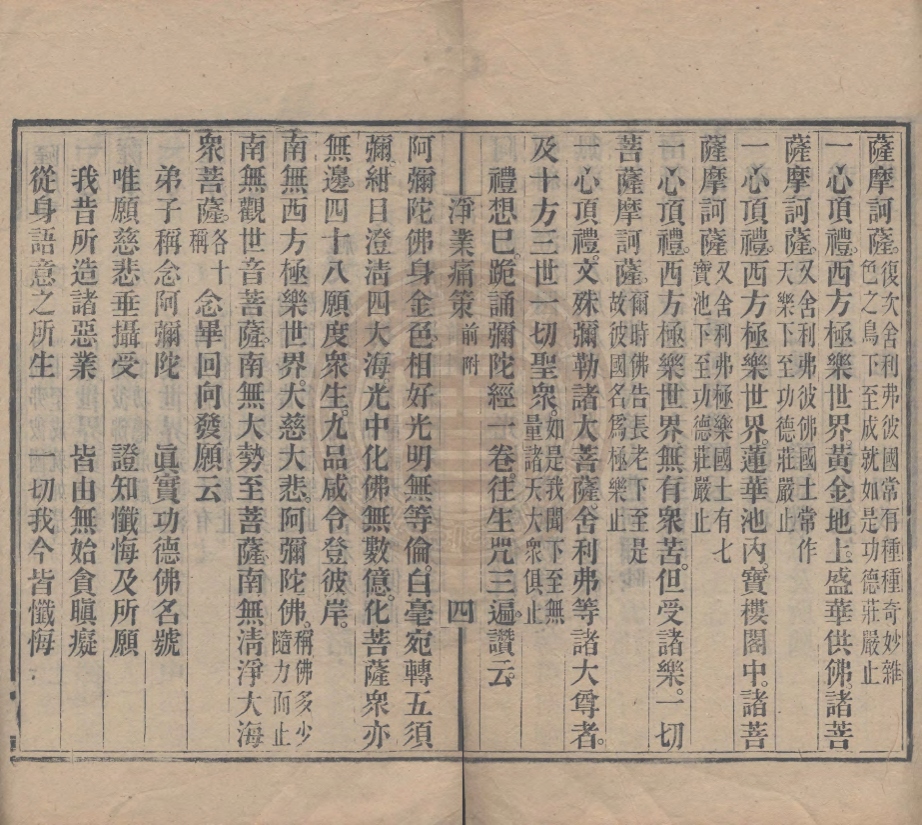 薩摩訶薩。復次舍利弗彼國常有種種奇妙雜色之鳥下至成就如是功德莊嚴止
一心頂禮。西方極樂世界。黃金地上。盛華供佛。諸菩
薩摩訶薩。又舍利弗彼佛國土常作天樂下至功德莊嚴止
一心頂禮。西方極樂世界。蓮華池內。寶樓閣中。諸菩
薩摩訶薩又舍利弗極樂國土有七寶池下至功德莊嚴止
一心頂禮。西方極樂世界無有衆苦。但受諸樂。一切
菩薩摩訶薩。爾時佛告長老下至是故彼國名爲極樂止
一心頂禮。文殊彌勒諸大菩薩。舍利弗等諸大尊者。
及十方三世一切聖衆。如是我聞下至無量諸天大衆俱止
禮想已。跪誦彌陀經一卷。往生咒三遍。讚云。
淨業痛策 前附 四
阿彌陀佛身金色。相好光明無等倫。白毫宛轉五須
彌。紺目澄清四大海。光中化佛無數億。化菩薩衆亦
無邊。四十八願度衆生。九品咸令登彼岸。
南無西方極樂世界。大慈大悲。阿彌陀佛。稱佛多少隨力而止
南無觀世音菩薩。南無大勢至菩薩。南無清淨大海
衆菩薩。各十稱念畢回向發願云
弟子稱念阿彌陀 眞實功德佛名號
唯願慈悲垂攝受 證知懺悔及所願
我昔所造諸惡業 皆由無始貪瞋癡
從身語意之所生 一切我今皆懺悔